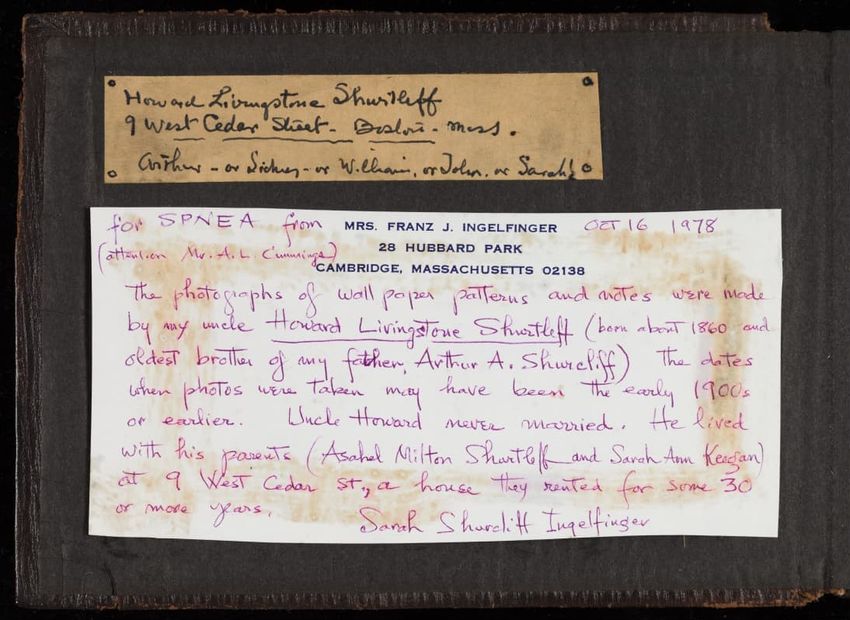 Howard Livingstone Shurtleff
9 West Cedar Street - Boston - Mass.
Arthur - or Sidney - or William, or John, or Sarah!
for SPNEA from MRS. FRANZ J. INGELFINGER OCT 16 1978
(attention Mr. A. L. Cummings) 28 HUBBARD PARK
CAMBRIDGE, MASSACHUSETTS 02138
The photographs of wall paper patterns and notes were made
by my uncle Howard Livingstone Shurtleff (born about 1860 and
oldest brother of my father, Arthur A. Shurcliff) The dates
when photos were taken may have been the early 1900s
or earlier. Uncle Howard never married. He lived
with his parents (Asahel Milton Shurtleff and Sarah Ann Keegan)
at 9 West Cedar St., a house they rented for some 30
or more years.
Sarah Shurcliff Ingelfinger